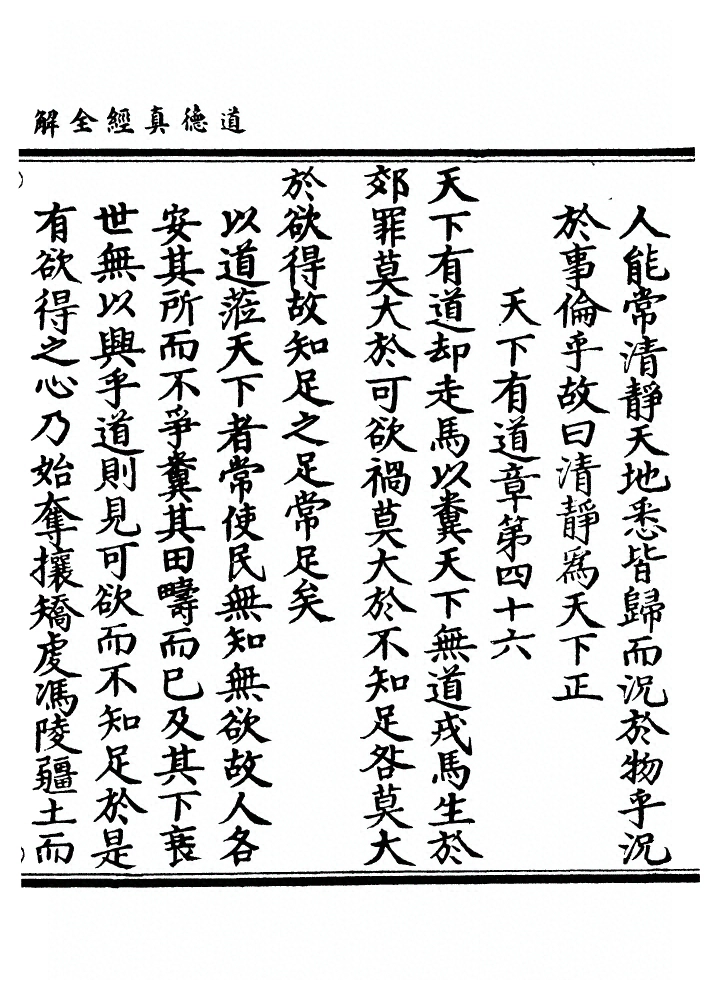 道德真經全解
人能常清靜天地悉皆歸而況於物乎況
於事倫乎故曰清靜爲天下正
天下有道章第四十六
天下有道却走馬以糞天下無道戎馬生於
郊罪莫大於可欲禍莫大於不知足咎莫大
於欲得故知足之足常足矣
以道蒞天下者常使民無知無欲故人各
安其所而不爭糞其田疇而已及其下衰
世無以興乎道則見可欲而不知足於是
有欲得之心乃始奪攘矯虔馮陵疆土而